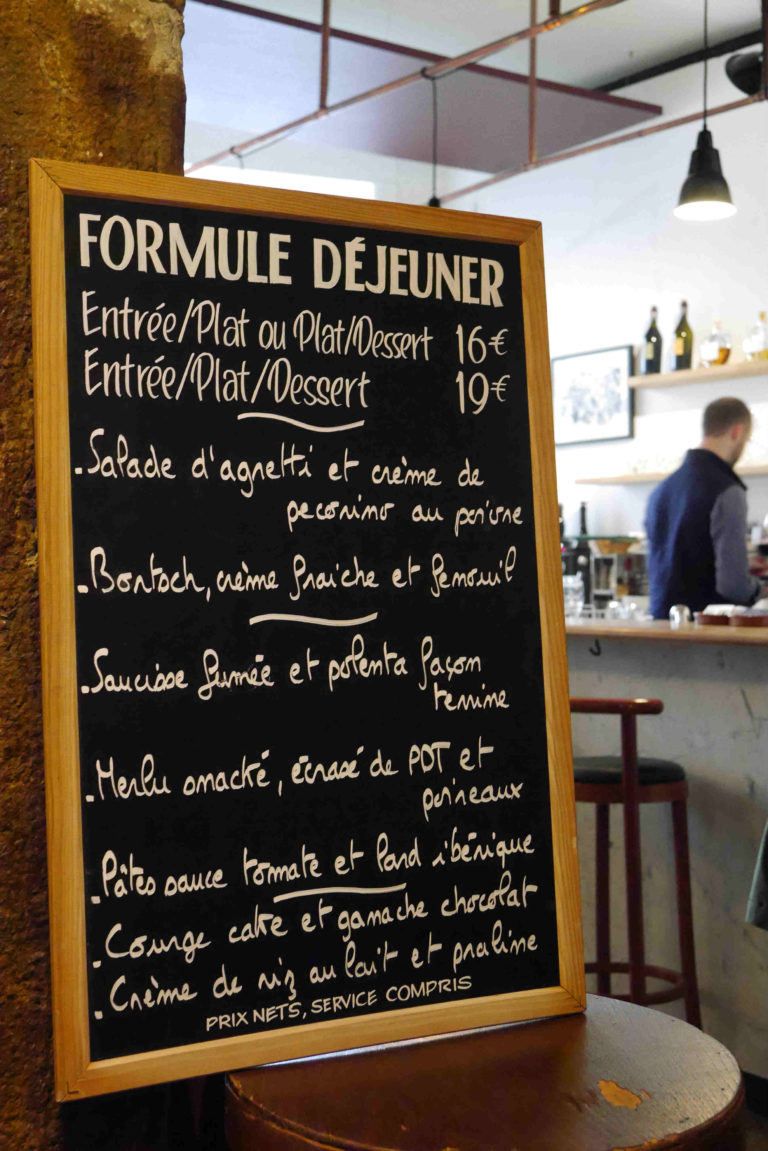 FORMULE DÉJEUNER
Entrée/Plat ou Plat/Dessert 16€
Entrée/Plat/Dessert 19€
.Salade d'agretti et crème de
pecorino au poivre
.Bortsch, crème fraiche et fenouil
.Saucisse fumée et polenta façon
terrine
.Merlu snacké, écrasé de PDT et
poireaux
.Pâtes sauce tomate et lard ibérique
.Courge cake et ganache chocolat
.Crème de riz au lait et praline
PRIX NETS, SERVICE COMPRIS